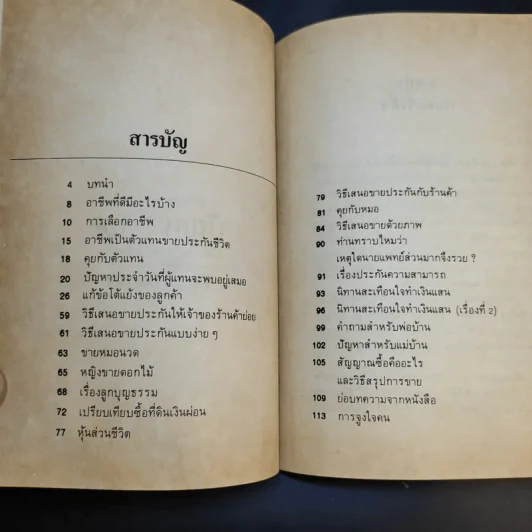 สารบัญ
4 บทนำ
8 อาชีพที่ดีมีอะไรบ้าง
10 การเลือกอาชีพ
15 อาชีพเป็นตัวแทนขายประกันชีวิต
18 คุยกับตัวแทน
20 ปัญหาประจำวันที่ผู้แทนจะพบอยู่เสมอ
26 แก้ข้อโต้แย้งของลูกค้า
59 วิธีเสนอขายประกันให้เจ้าของร้านค้าย่อย
61 วิธีเสนอขายประกันแบบง่าย ๆ
63 ขายหมอนวด
65 หญิงขายดอกไม้
68 เรื่องลูกบุญธรรม
72 เปรียบเทียบซื้อที่ดินเงินผ่อน
77 หุ้นส่วนชีวิต
79 วิธีเสนอขายประกันกับร้านค้า
81 คุยกับหมอ
84 วิธีเสนอขายด้วยภาพ
90 ท่านทราบไหมว่า
เหตุใดนายแพทย์ส่วนมากจึงรวย ?
91 เรื่องประกันความสามารถ
93 นิทานสะเทือนใจทำเงินแสน
96 นิทานสะเทือนใจทำเงินแสน (เรื่องที่ 2)
99 คำถามสำหรับพ่อบ้าน
102 ปัญหาสำหรับแม่บ้าน
105 สัญญาณซื้อคืออะไร
และวิธีสรุปการขาย
109 ย่อบทความจากหนังสือ
113 การจูงใจคน